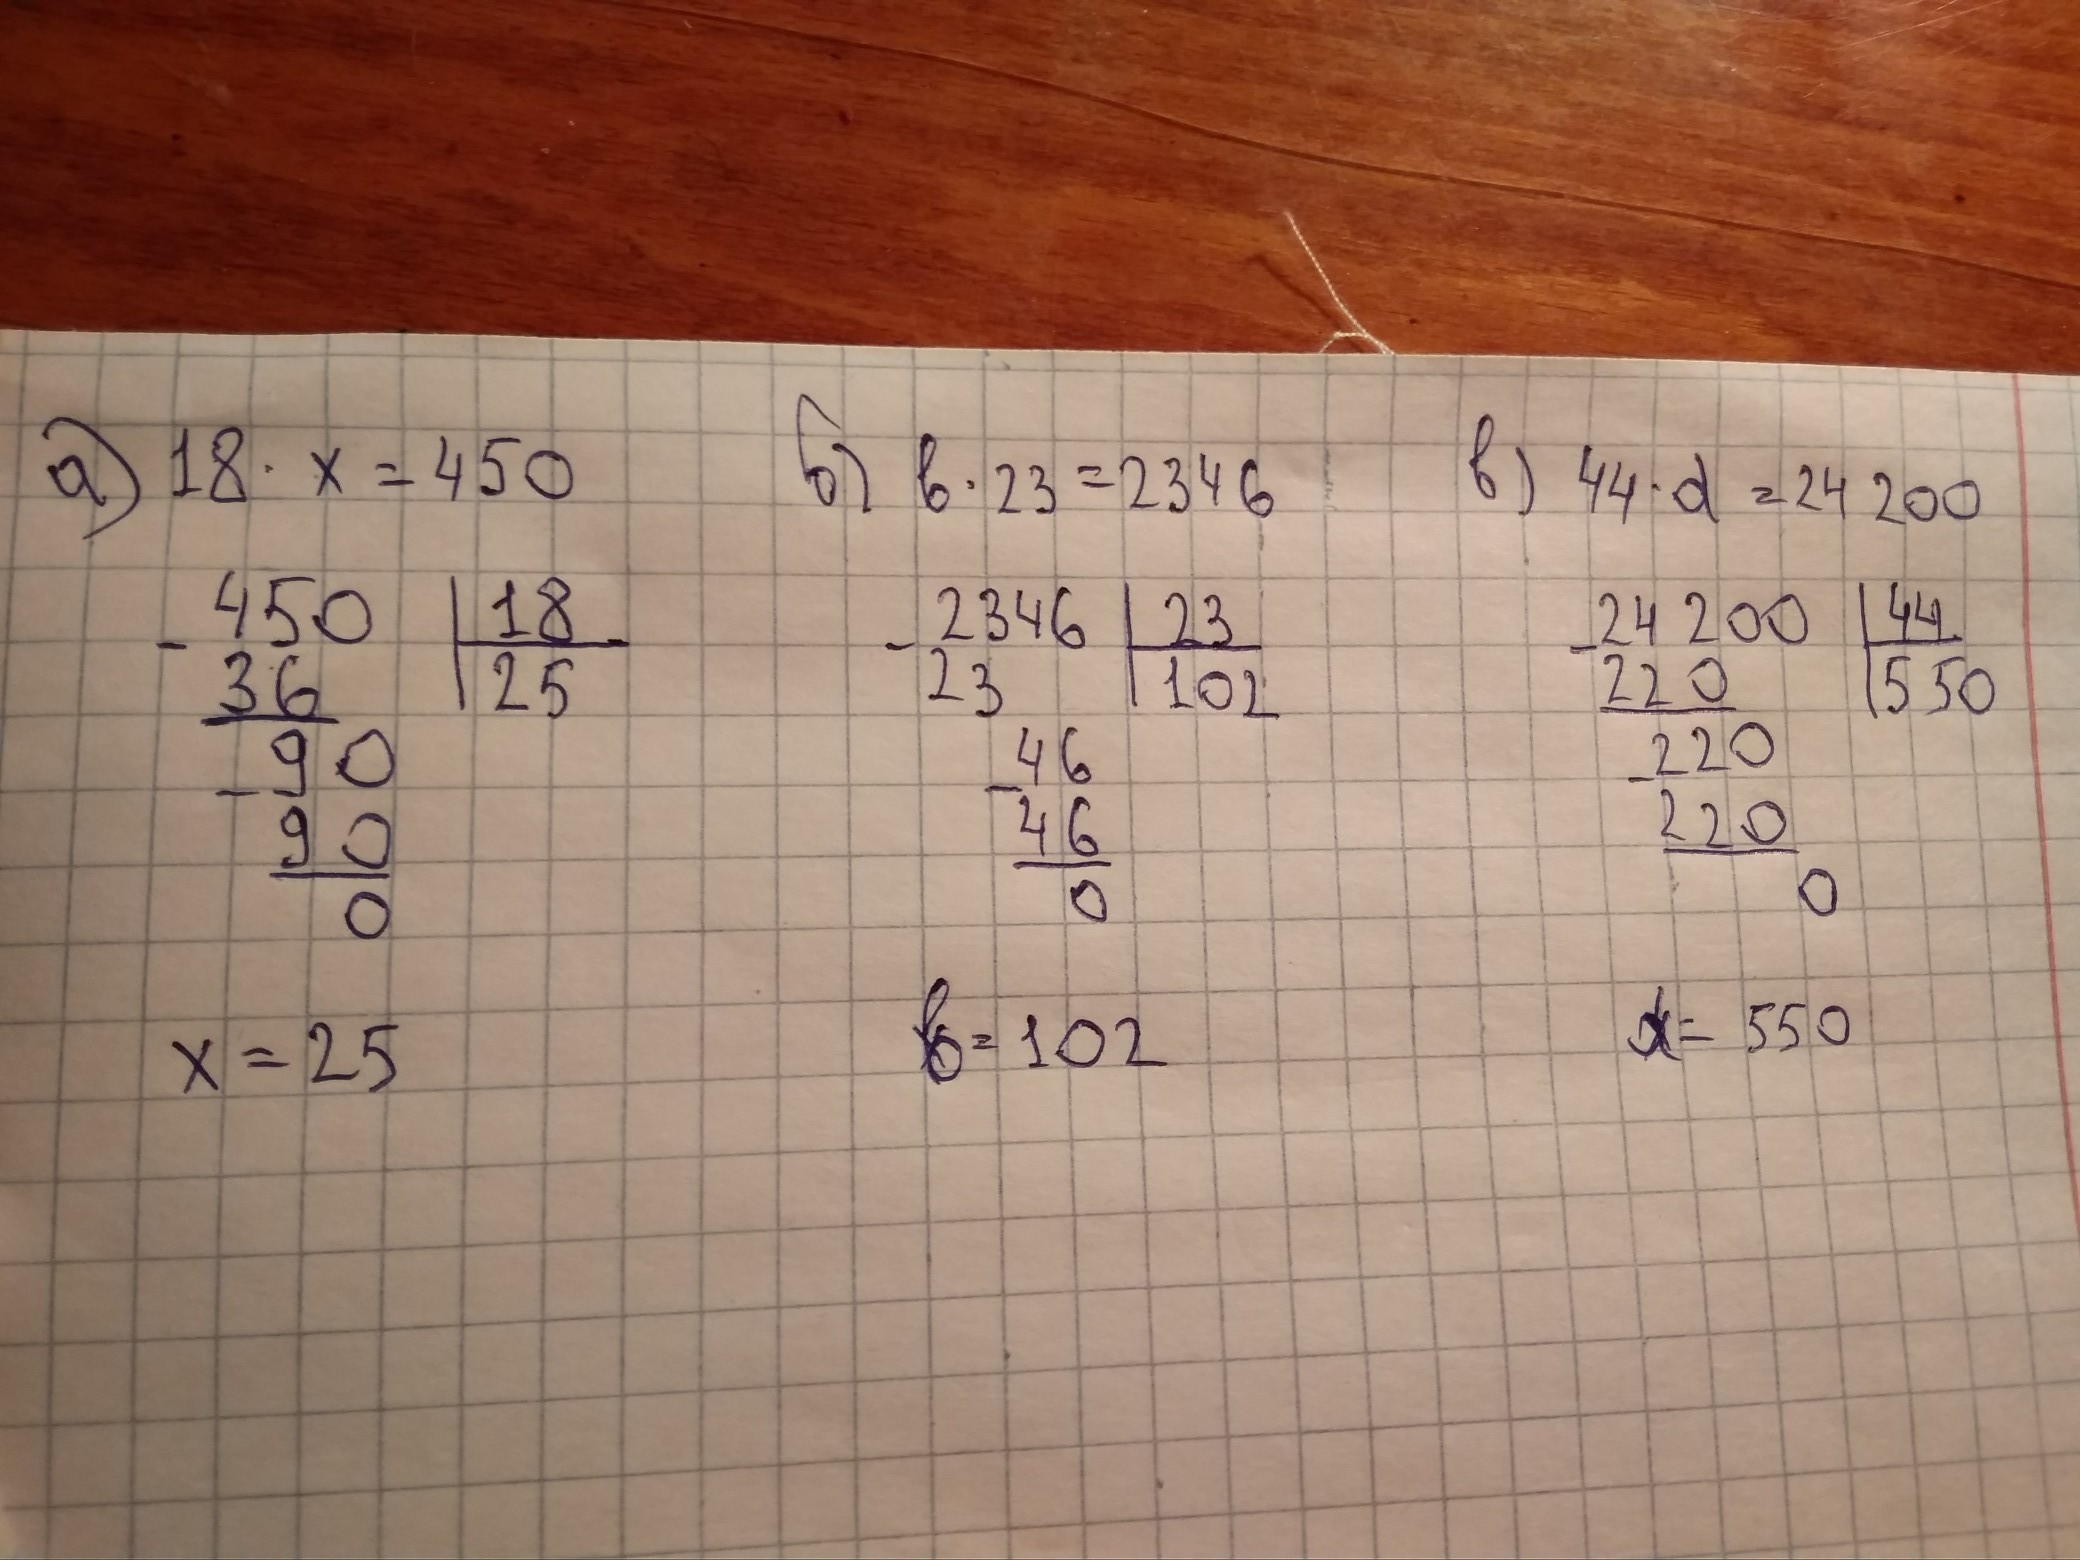 а) 18 · x = 450
- 450 | 18
36 | 25
- 90
90
0
x = 25
б) b · 23 = 2346
- 2346 | 23
23 | 102
- 46
46
0
b = 102
в) 44 · d = 24 200
- 24 200 | 44
220 | 550
- 220
220
0
d = 550